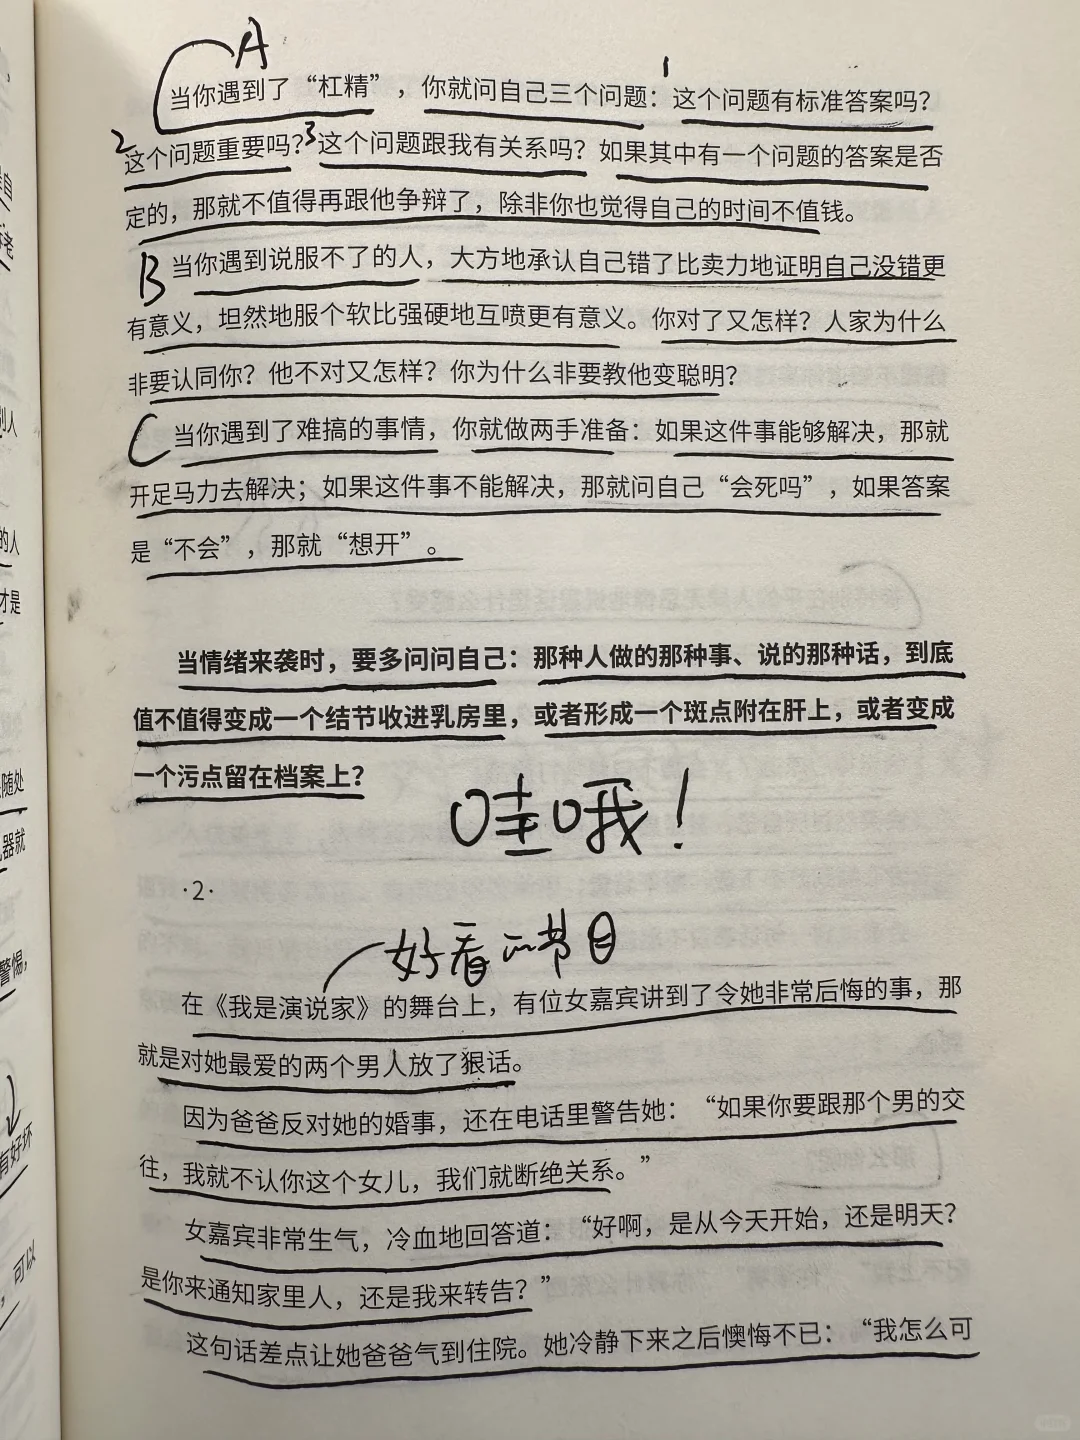 A
1
当你遇到了“杠精”，你就问自己三个问题：这个问题有标准答案吗？
2 3
这个问题重要吗？这个问题跟我有关系吗？如果其中有一个问题的答案是否
定的，那就不值得再跟他争辩了，除非你也觉得自己的时间不值钱。
B 当你遇到说服不了的人，大方地承认自己错了比卖力地证明自己没错更
有意义，坦然地服个软比强硬地互喷更有意义。你对了又怎样？人家为什么
非要认同你？他不对又怎样？你为什么非要教他变聪明？
C 当你遇到了难搞的事情，你就做两手准备：如果这件事能够解决，那就
开足马力去解决；如果这件事不能解决，那就问自己“会死吗”，如果答案
是“不会”，那就“想开”。
当情绪来袭时，要多问问自己：那种人做的那种事、说的那种话，到底
值不值得变成一个结节收进乳房里，或者形成一个斑点附在肝上，或者变成
一个污点留在档案上？
哇哦！
·2·
好看的节目
在《我是演说家》的舞台上，有位女嘉宾讲到了令她非常后悔的事，那
就是对她最爱的两个男人放了狠话。
因为爸爸反对她的婚事，还在电话里警告她：“如果你要跟那个男的交
往，我就不认你这个女儿，我们就断绝关系。”
女嘉宾非常生气，冷血地回答道：“好啊，是从今天开始，还是明天？
是你来通知家里人，还是我来转告？”
这句话差点让她爸爸气到住院。她冷静下来之后懊悔不已：“我怎么可
别人
的人
才是
随处
器就
警惕，
有好坏
，可以